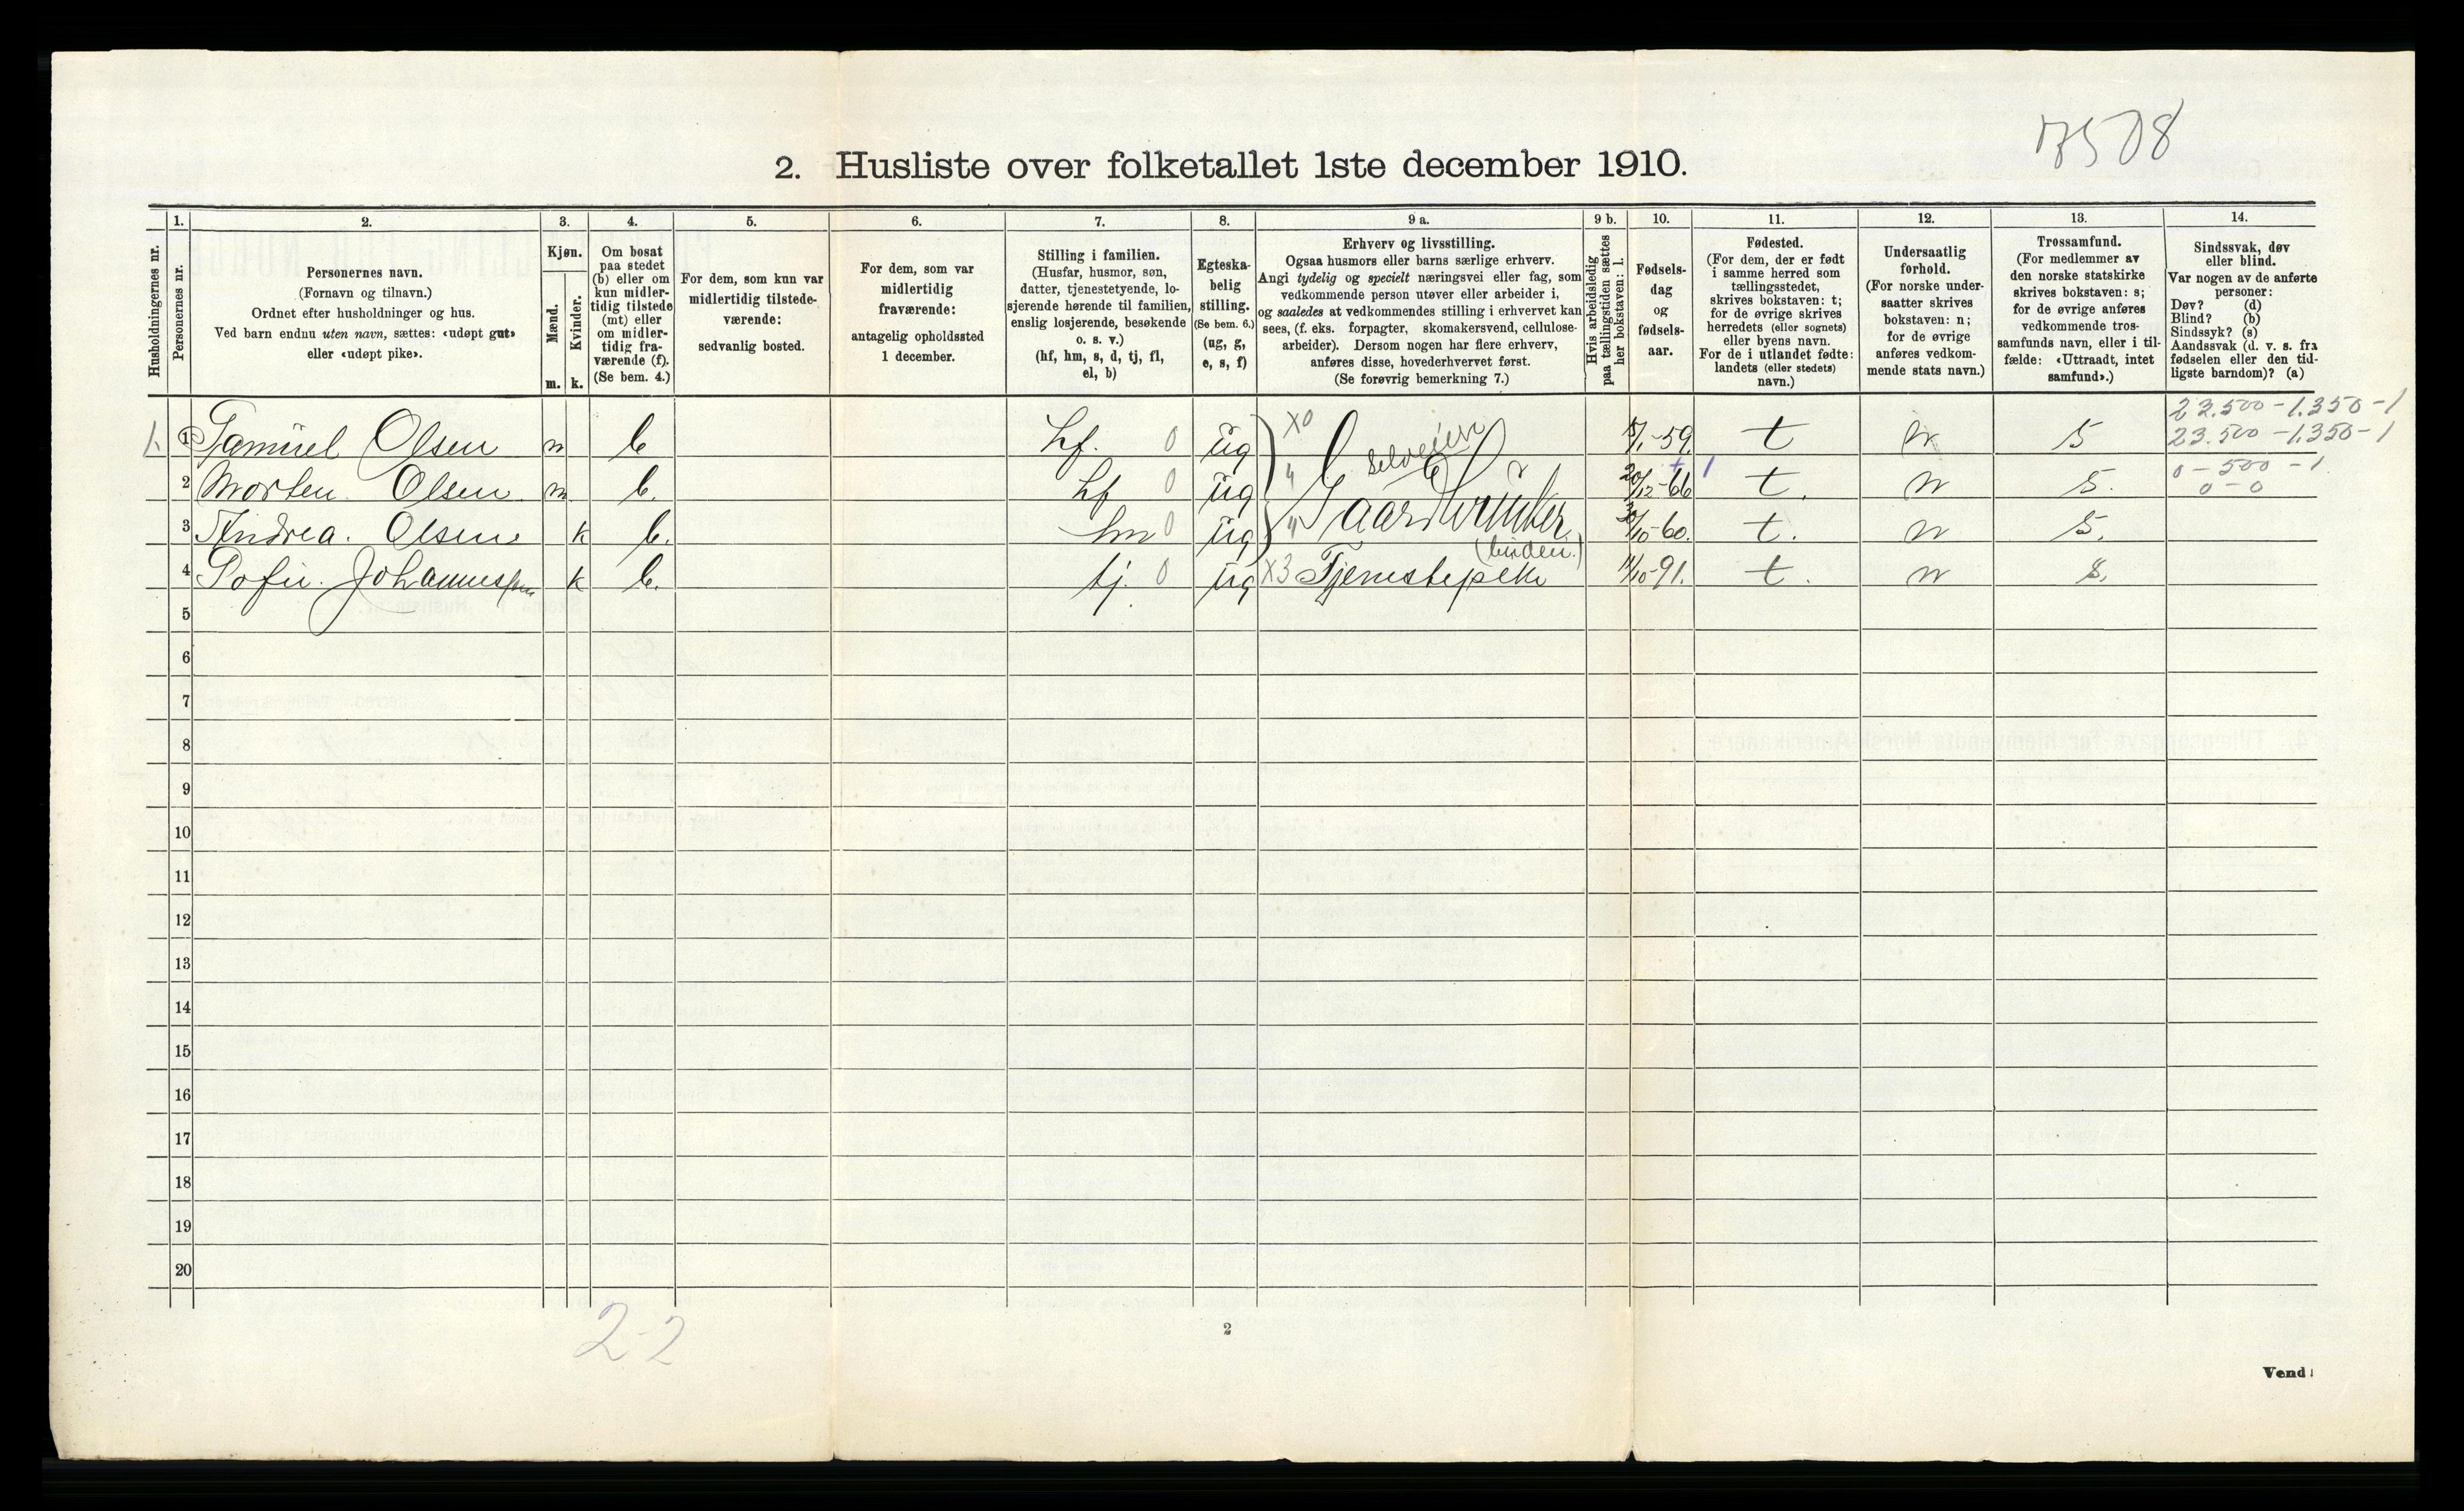 7508
2. Husliste over folketallet 1ste december 1910.
Husholdningernes nr.
1.
Personernes nr.
2.
Personernes navn.
(Fornavn og tilnavn.)
Ordnet efter husholdninger og hus.
Ved barn endnu uten navn, sættes: «udøpt gut»
eller «udøpt pike».
3.
Kjøn.
Mænd.
Kvinder.
m. k.
4.
Om bosat
paa stedet
(b) eller om
kun midler-
tidig tilstede
(mt) eller
om midler-
tidig fra-
værende (f).
(Se bem. 4.)
5.
For dem, som kun var
midlertidig tilstede-
værende:
sedvanlig bosted.
6.
For dem, som var
midlertidig
fraværende:
antagelig opholdssted
1 december.
7.
Stilling i familien.
(Husfar, husmor, søn,
datter, tjenestetyende, lo-
sjerende hørende til familien,
enslig losjerende, besøkende
o. s. v.)
(hf, hm, s, d, tj, fl,
el, b)
8.
Egteska-
belig
stilling.
(Se bem. 6.)
(ug, g,
e, s, f)
9 a.
Erhverv og livsstilling.
Ogsaa husmors eller barns særlige erhverv.
Angi tydelig og specielt næringsvei eller fag, som
vedkommende person utøver eller arbeider i,
og saaledes at vedkommendes stilling i erhvervet kan
sees, (f. eks. forpagter, skomakersvend, cellulose-
arbeider). Dersom nogen har flere erhverv,
anføres disse, hovederhvervet først.
(Se forøvrig bemerkning 7.)
9 b.
Hvis arbeidsledig
paa tællingstiden sættes
her bokstaven: l.
10.
Fødsels-
dag
og
fødsels-
aar.
11.
Fødested.
(For dem, der er født
i samme herred som
tællingsstedet,
skrives bokstaven: t;
for de øvrige skrives
herredets (eller sognets)
eller byens navn.
For de i utlandet fødte:
landets (eller stedets)
navn.)
12.
Undersaatlig
forhold.
(For norske under-
saatter skrives
bokstaven: n;
for de øvrige
anføres vedkom-
mende stats navn.)
13.
Trossamfund.
(For medlemmer av
den norske statskirke
skrives bokstaven: s;
for de øvrige anføres
vedkommende tros-
samfunds navn, eller i til-
fælde: «Uttraadt, intet
samfund».)
14.
Sindssvak, døv
eller blind.
Var nogen av de anførte
personer:
Døv? (d)
Blind? (b)
Sindssyk? (s)
Aandssvak (d. v. s. fra
fødselen eller den tid-
ligste barndom)? (a)
23.500 - 1.350 - 1
1. 1 Samuel Olsen m b hf. 0 ug X0 selveier 15/1-59. t n s 23.500 - 1.350 - 1
2 Morten Olsen m b. hf 0 ug " 20/12-66 1 t. n s. 0 - 500 - 1.
0 - 0
3 Andrea. Olsen k b. hm 0 ug " Gaardbruker 30/10-60. t. n s.
4 Sofie Johannessen k b. tj. 0 ug X3 Tjenestepike 14/10-91. t. n s.
5
6
7
8
9
10
11
12
13
14
15
16
17
18
19
20
2-2
2
Vend!